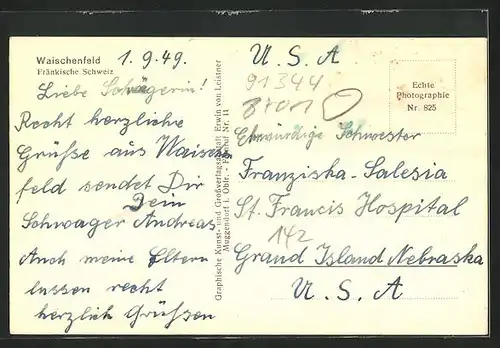 Waischenfeld
Fränkische Schweiz
1.9.49.
Liebe Schwägerin!
Recht herzliche
Grüße aus Waischen
feld sendet Dir
Dein
Schwager Andreas
Auch meine Eltern
lassen recht
herzlich Grüssen
Graphische Kunst- und Großverlagsanstalt Erwin von Leistner
Muggendorf i. Obfr. - Forsthof Nr. 11
U. S. A
91344
Echte
Photographie
Nr. 825
Ehrwürdige Schwester
Franziska-Salesia
St. Francis Hospital
142
Grand Island Nebraska
U. S. A